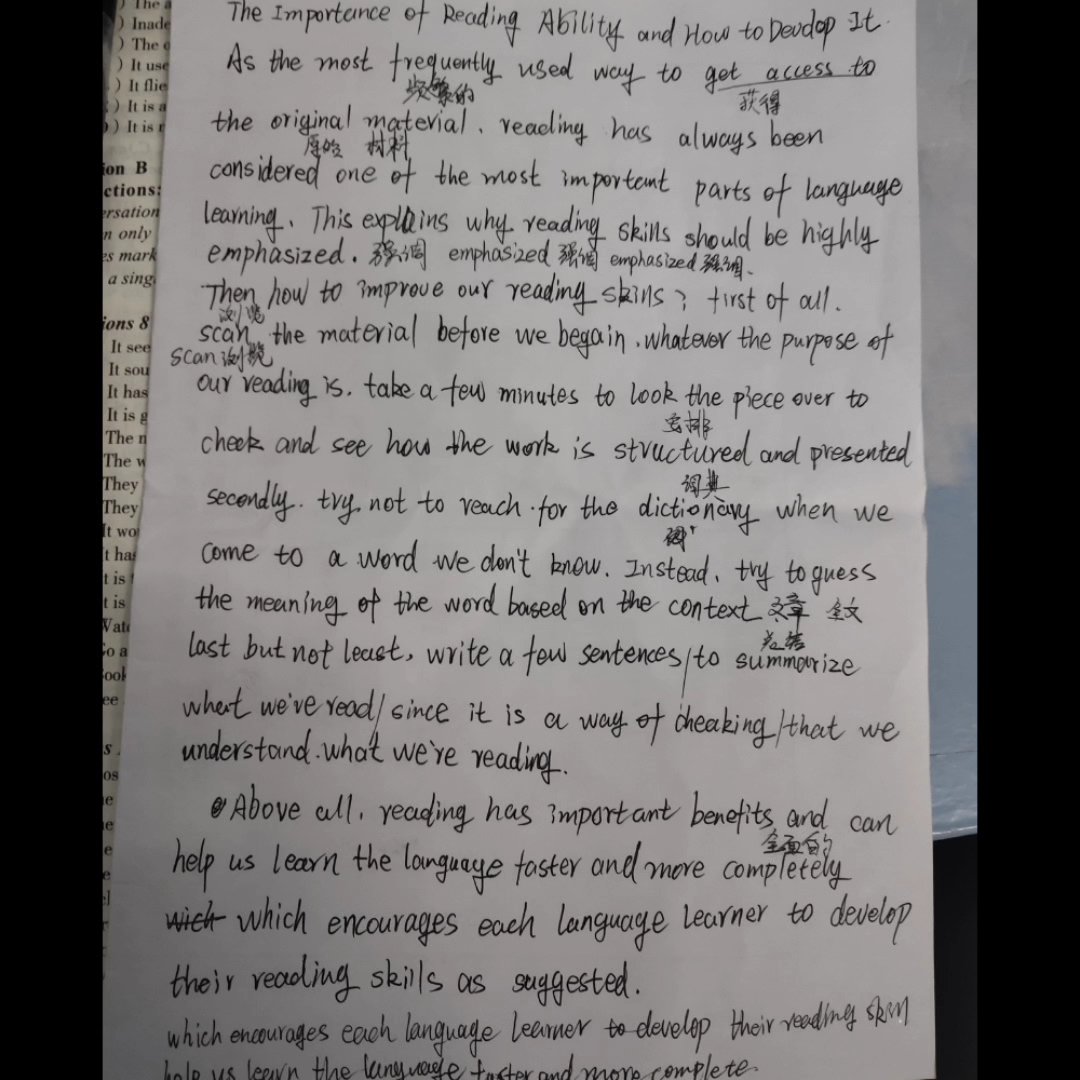 ) The a
) Inade
) The c
) It use
) It flie
) It is a
) It is r
ion B
ctions:
ersation
n only
es mark
a sing
ions 8
It see
It sou
It has
It is g
The n
The w
They
They
It wo
t ha
t is
t is
Wat
o a
ook
ee
The Importance of Reading Ability and How to Devdop It.
As the most frequently used way to get access to
频繁的 获得
the original material. reading has always been
原始 材料
considered one of the most importent parts of language
learning. This explains why reading skills should be highly
emphasized. 强调 emphasized 强调 emphasized 强调.
Then how to improve our reading skins? first of all.
浏览
scan the material before we begain. whatever the purpose of
scan 浏览
our reading is. take a few minutes to look the piece over to
安排
cheek and see how the work is structured and presented
词典
secondly. try not to reach for the dictionary when we
词
come to a word we don't know. Instead. try to guess
the meaning of the word based on the context 文章 全文
总结
last but not least, write a few sentences/to summarize
what we've read/since it is a way of cheaking/that we
understand.what we're reading.
Above all. reading has important benefits and can
全面的
help us learn the language faster and more completely
wich which encourages each language learner to develop
their reading skills as suggested.
which encourages each language learner to develop their reading skin
help us learn the language faster and more complete.